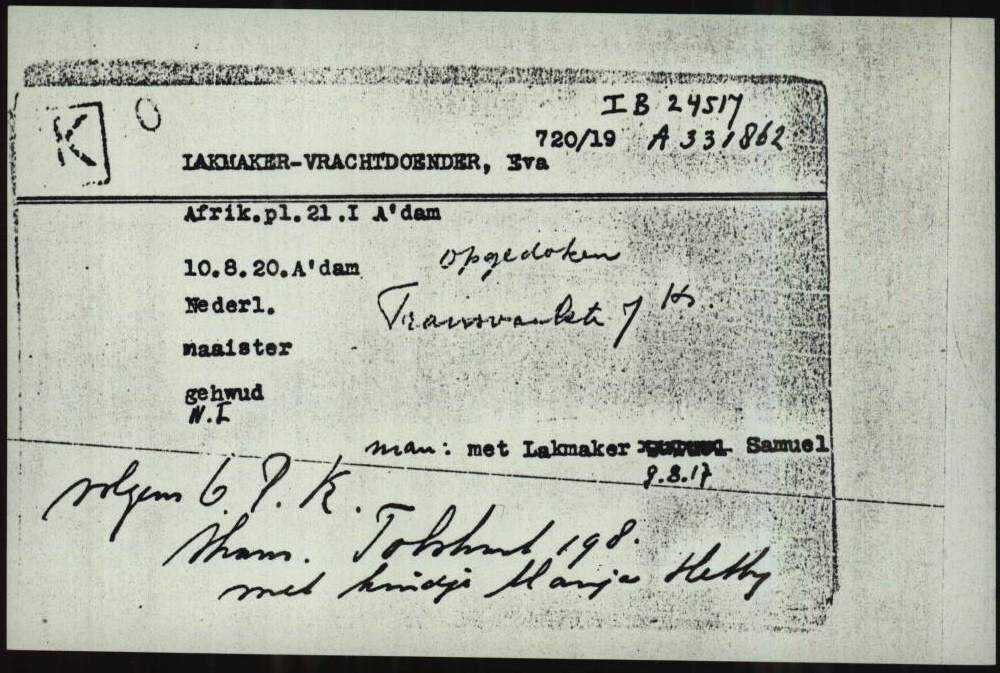 K
O
I B 24517
720/19 A 331862
LAKMAKER-VRACHTDOENDER, Eva
Afrik.pl.21.I A'dam
opgedoken
10.8.20.A'dam
Nederl.
Transvaalstr 7 hs.
naaister
gehwud
N.I
man: met Lakmaker Samuel
9.8.17
volgens C.P.K.
thans. Tolstraat 198.
met kindje Manja Hetty